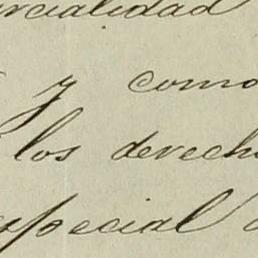 arcialidad
y como
los derecho
especial